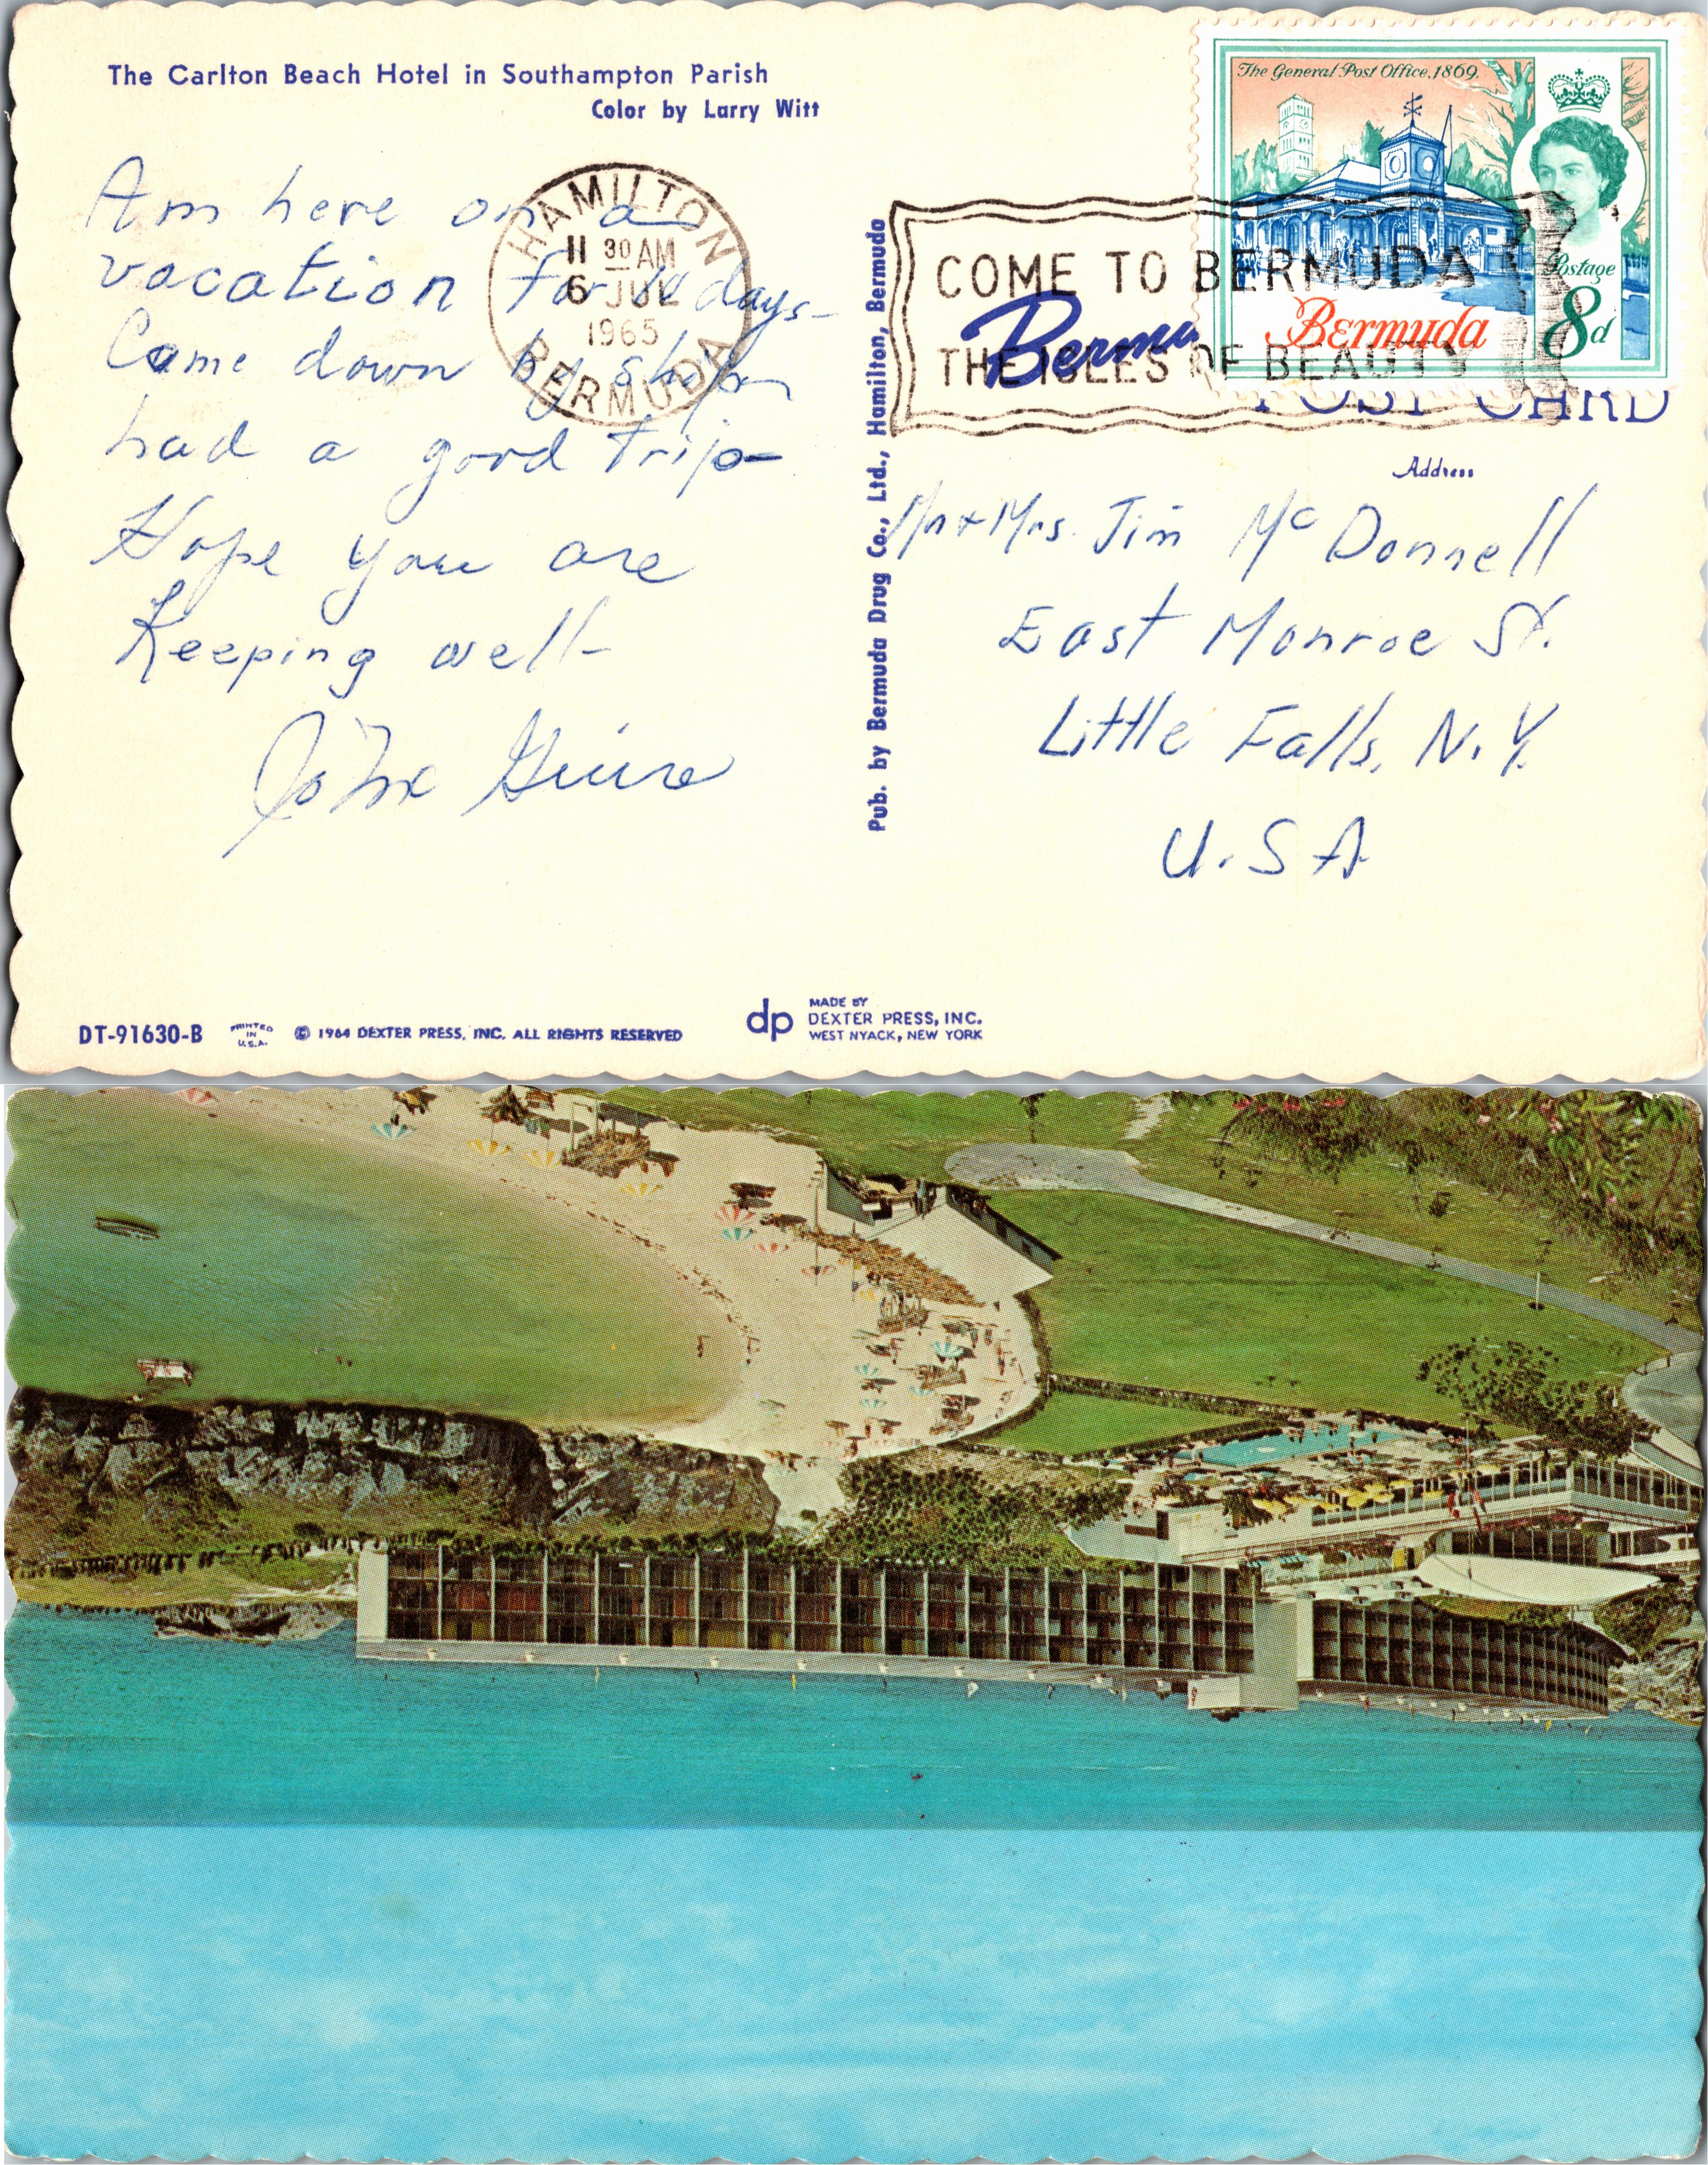 The Carlton Beach Hotel in Southampton Parish
Color by Larry Witt
Am here on a
vacation for days-
Came down by ship
had a good trip-
Hope you are
Keeping well-
HAMILTON
11 30 AM
6 JUL
1965
BERMUDA
Pub. by Bermuda Drug Co., Ltd., Hamilton, Bermuda
The General Post Office, 1869.
Postage
8d
Bermuda
COME TO BERMUDA
THE ISLES OF BEAUTY
Bermu
POST CARD
Address
Mr + Mrs. Jim McDonnell
East Monroe St.
Little Falls, N.Y.
U.S A
DT-91630-B
PRINTED
IN
U.S.A.
© 1964 DEXTER PRESS, INC. ALL RIGHTS RESERVED
dp
MADE BY
DEXTER PRESS, INC.
WEST NYACK, NEW YORK